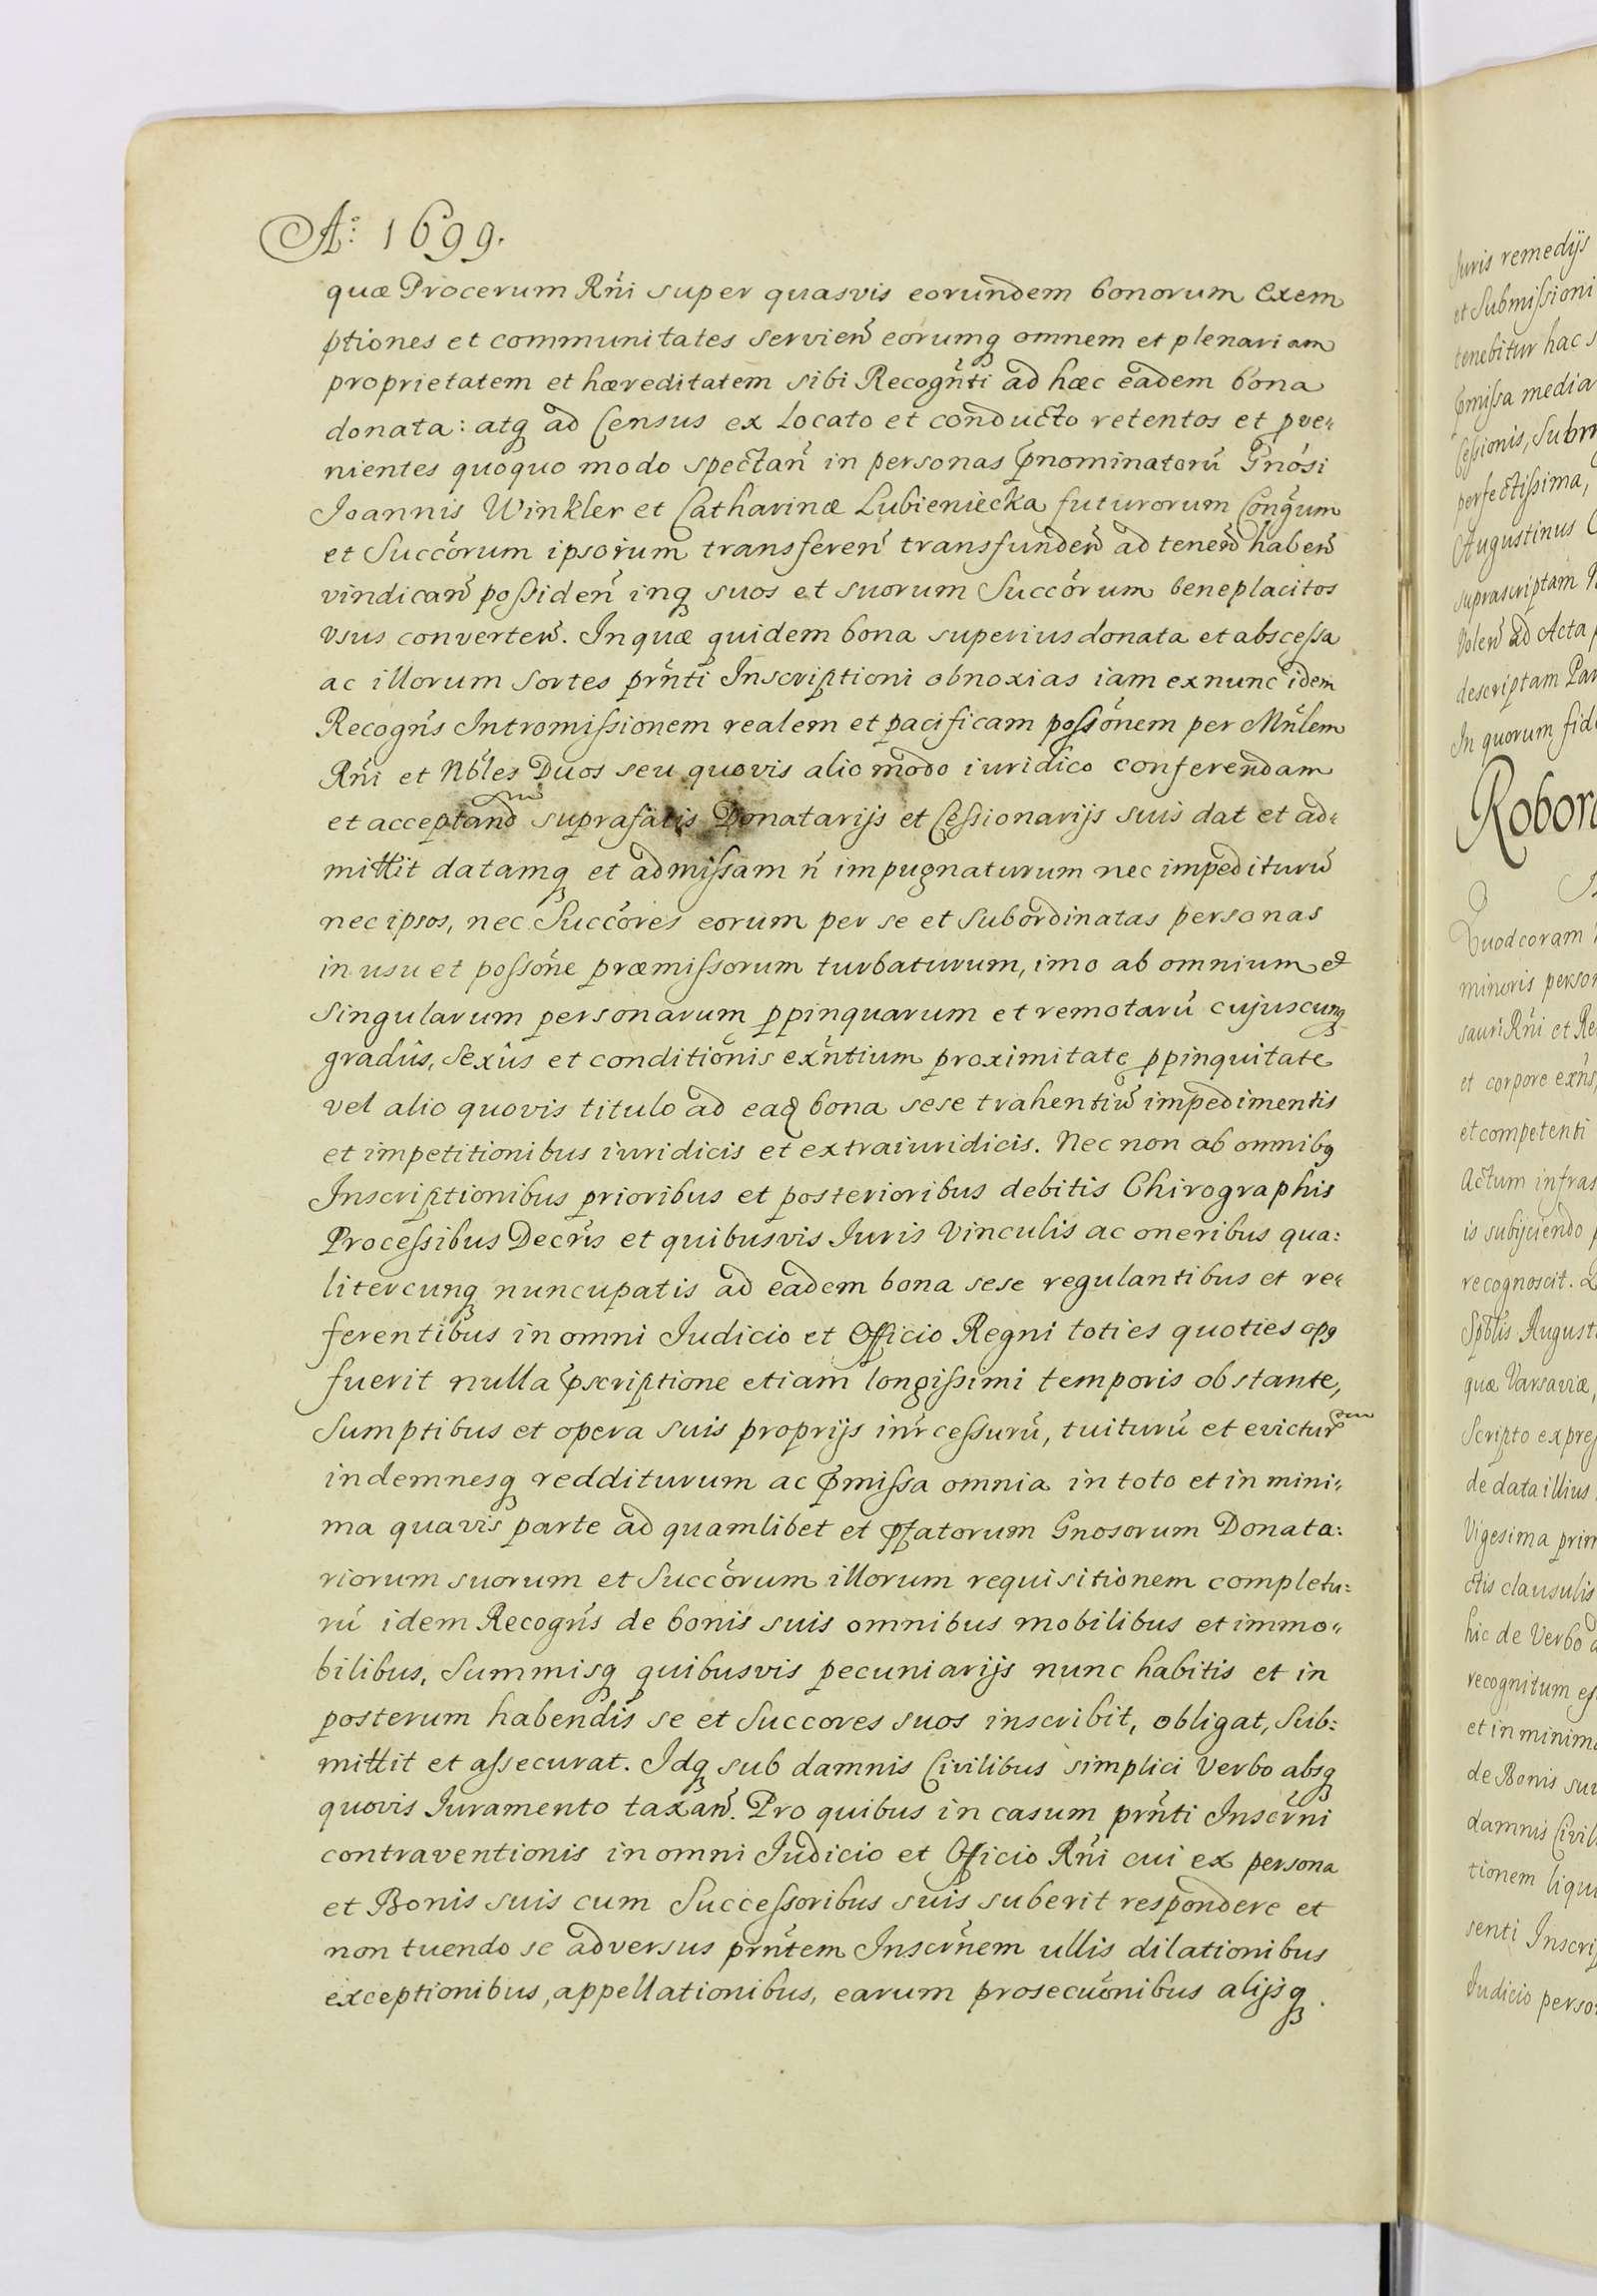 Aº: 1699.
quæ Procerum Rñi super quasvis eorundem bonorum Exem
ptiones et communitates servieñ eorumq; omnem et plenariam
proprietatem et hæreditatem sibi Recogñti ad hæc eadem bona
donata: atq; ad Census ex Locato et conducto retentos et pve„
nientes quoquo modo spectañ in personas p̄nominatorũ Gnósi
Joannis Winkler et Catharinæ Lubieniecka futurorum Cong̃um
et Succõrum ipsorum transfereñ transfundeñ ad teneñ habeñ
vindicañ poßideñ inq; suos et suorum Succõrum beneplacitos
vsus converteñ. In quæ quidem bona superius donata et abscessa
ac illorum Sortes prñti Inscriptioni obnoxias iam exnunc idem
Recogñs Intromißionem realem et pacificam poßõnem per Mñlem
Rñi et Nb̃les Duos seu quovis alio modo iuridico conferendam
et acceptand̃ suprafatis Donatarijs et Ceßionarijs suis dat et ad„
mittit datamq; et admißam ñ impugnaturum nec impediturũ
nec ipsos, nec Succõres eorum per se et Subordinatas personas
in usu et poßõne præmißorum turbaturum, imo ab omnium et
Singularum personarum ppinquarum et remotarũ cujuscunq;
gradûs, Sexûs et conditiõnis exñtium proximitate ppinquitate
vel alio quovis titulo ad eaq̃ bona sese trahentiũ impedimentis
et impetitionibus iuridicis et extraiuridicis. Nec non ab omnibꝰ
Inscriptionibus prioribus et posterioribus debitis Chirographis
Proceßibus Decr̃is et quibusvis Iuris Vinculis ac oneribus qua:
litercunq; nuncupatis ad eadem bona sese regulantibus et re„
ferentibus in omni Iudicio et Officio Regni toties quoties opꝰ
fuerit nulla p̄scriptione etiam longißimi temporis obstante,
Sumptibus et opera suis proprijs inr̃ceßurũ, tuiturũ et evictur̃
indemnesq; redditurum ac p̄mißa omnia in toto et in mini„
ma quavis parte ad quamlibet et p̄fatorum Gnosorum Donata:
riorum suorum et Succõrum illorum requisitionem completu=
rũ idem Recogñs de bonis suis omnibus mobilibus et immo„
bilibus, Summisq; quibusvis pecuniarijs nunc habitis et in
posterum habendis se et Succores suos inscribit, obligat, Sub:
mittit et aßecurat. Idq; sub damnis Civilibus simplici Verbo absq;
quovis Iuramento taxañ. Pro quibus in casum prñti Inscr̃ni
contraventionis in omni Iudicio et Officio Rñi cui ex persona
et Bonis suis cum Succeßoribus suis suberit respondere et
non tuendo se adversus prñtem Inscr̃nem ullis dilationibus
exceptionibus, appellationibus, earum prosecuõnibus alijsq;
Iuris remedijs
et Submißioni
tenebitur hac s
p̄mißa media
Ceßionis, Subm
perfectißima,
Augustinus C
suprascriptam
Voleñ ad Acta p
descriptam Par
In quorum fid
Robor
Quod coram
minoris person
sauri Rñi et Re
et corpore exñs,
et competenti
Actum infras
is subijciendo p
recognoscit. Q
Spb̃lis August
quæ Varsaviæ,
Scripto expreß
de data illius
Vigesima prim
ctis clausulis
hic de Verbo a
recognitum eß
et in minima
de Bonis sui
damnis Civil
tionem liqui
senti Inscrip
Iudicio person